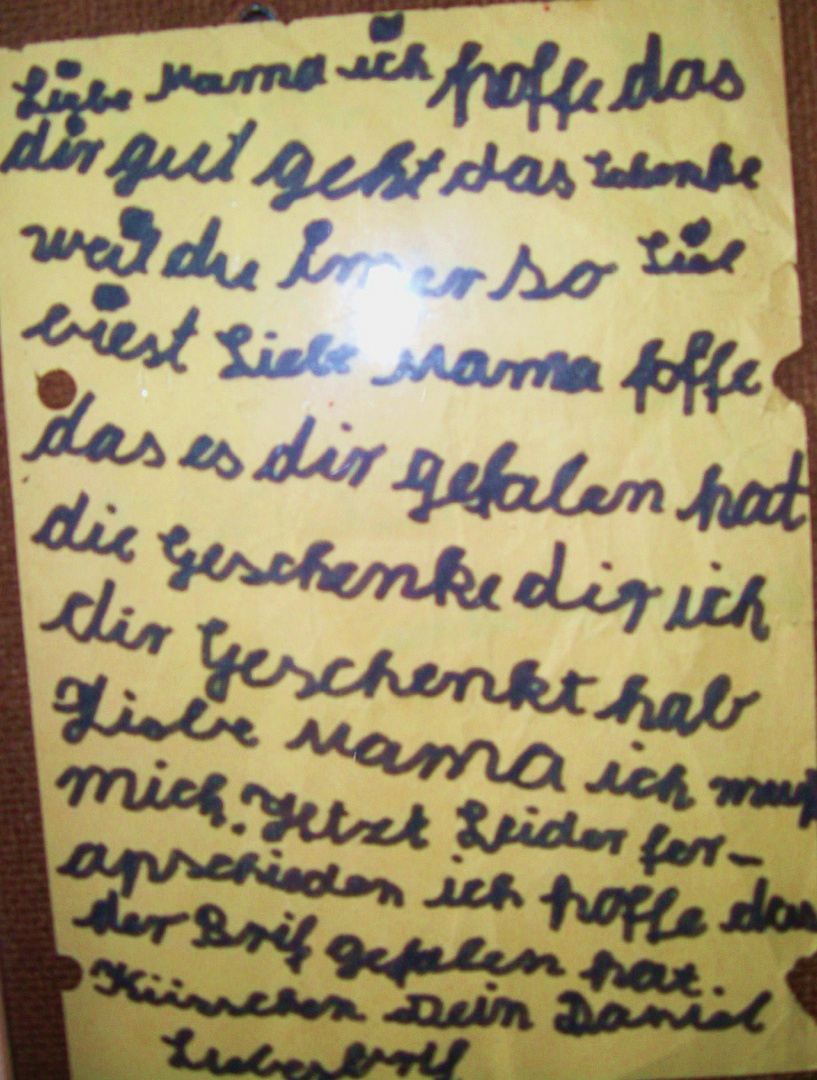 Liebe Mama ich hoffe das
dir gut geht das
weil du imer so Lieb
biest Liebe Mama hoffe
das es dir gefalen hat
die Geschenke dir ich
dir Geschenkt hab
Liebe Mama ich muß
mich Jetzt Leider fer-
apschieden ich hoffe das
der Brif gefalen hat.
Küsschen Dein Daniel
Liebesbrif